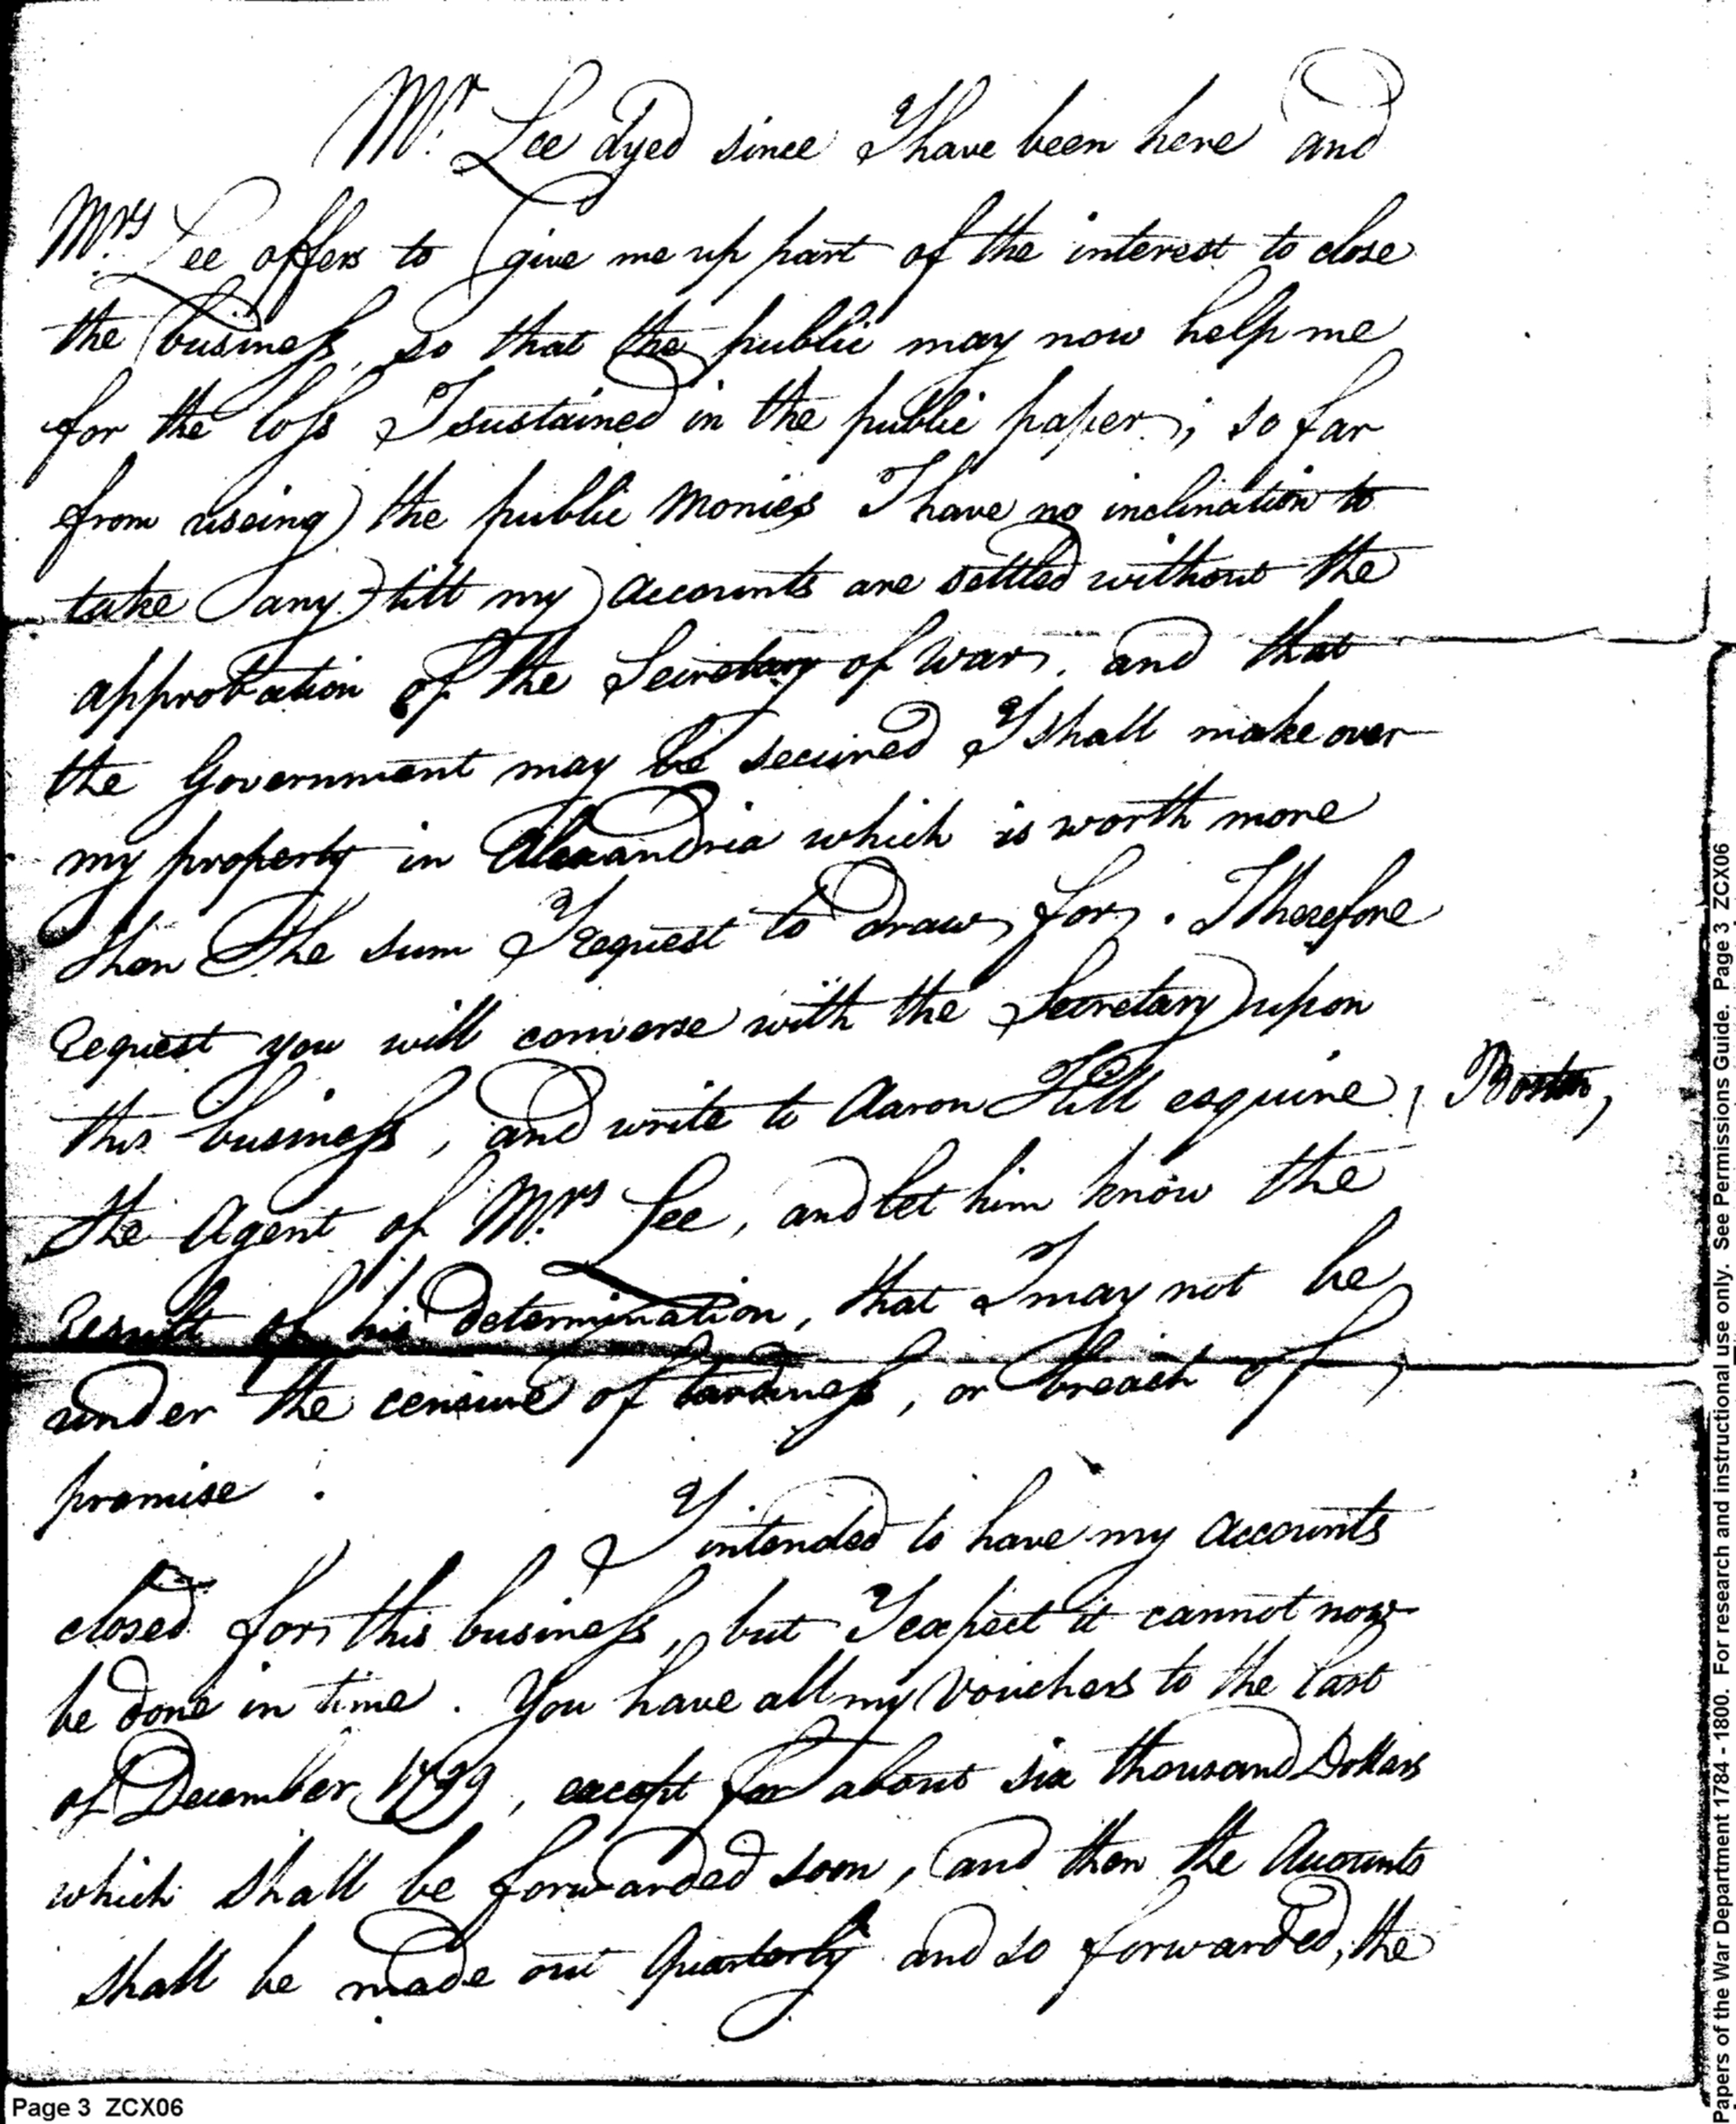 Mr. Lee dyed since I have been here and
Mrs. Lee offers to give me up part of the interest to close
the business, so that the public may now help me
for the loss I sustained in the public paper; so far
from useing the public Monies I have no inclination to
take any till my Accounts are settled without the
approbation of the Secretary of War, and that
the Government may be secured I shall make over
my property in Alexandria which is worth more
than the sum I request to draw for. I therefore
request you will converse with the Secretary upon
this business, and write to Aaron Hill esquire, Boston,
the Agent of Mrs. Lee, and let him know the
result of his determination, that I may not be
under the censure of tardiness, or breach of
promise.
I intended to have my Accounts
closed for this business, but I expect it cannot now
be done in time. You have all my Vouchers to the last
of December 1799, except for about six thousand Dollars
which shall be forwarded soon, and then the Accounts
shall be made out Quarterly and so forwarded, the
Page 3 ZCX06
Papers of the War Department 1784 - 1800. For research and instructional use only. See Permissions Guide. Page 3 ZCX06